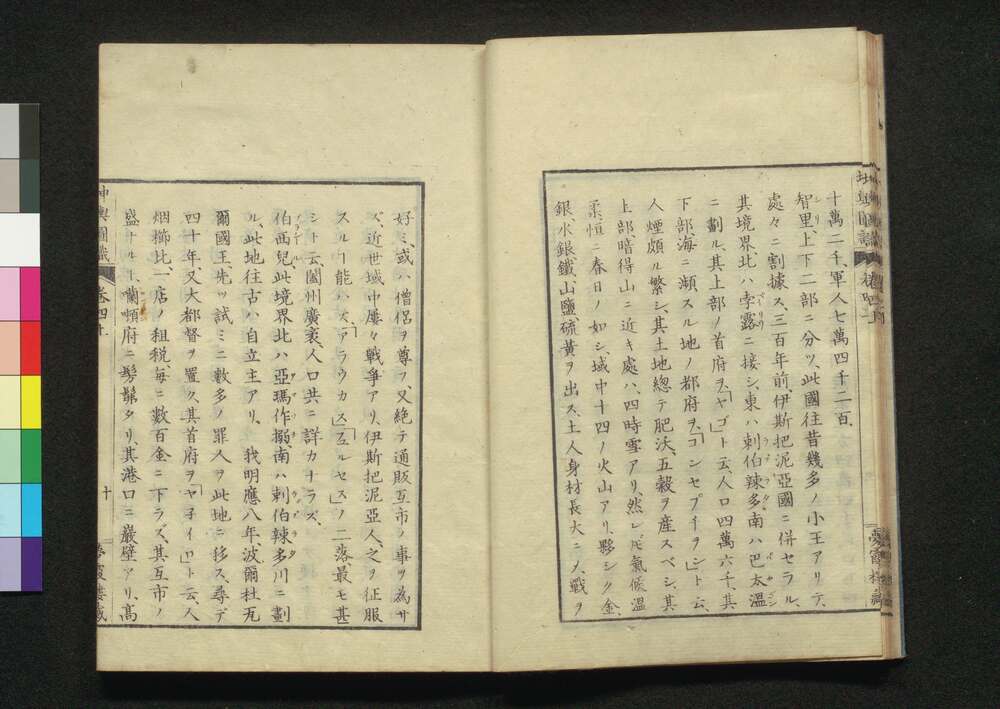 十萬二千、軍人七萬四千二百、
智里、上下二部ニ分ツ、此國往昔幾多ノ小王アリテ、
處々ニ割據ス、三百年前、伊斯把泥亞國ニ併セラル、
其境界北ハ孛露ニ接シ、東ハ剌伯辣多南ハ巴太溫
ニ劃ル、其上部ノ首府ヲ、「ヤゴ」ト云、人口四萬六千、其
下部、海ニ瀕スル地ノ都府ヲ、「コンセプイヲン」ト云、
人煙頗ル繁シ、其土地總テ肥沃、五穀ヲ産スベシ、其
上部暗得山ニ近キ處ハ、四時雪アリ、然レ𪜈氣候溫
柔、恒ニ春日ノ如シ、域中十四ノ火山アリ、夥シク金、
銀、水銀、鐵、山鹽、硫黄ヲ出ス、土人身材長大ニ〆、戰ヲ
好ミ、或ハ僧侶ヲ尊フ、又絶テ通販互市ノ事ヲ為サ
ズ、近世域中屢々戰爭アリ、伊斯把泥亞人、之ヲ征服
スルヿ能ハズ、「アラウカス」「ユルセス」ノ二落、最モ甚
シト云、闔州廣袤、人口共ニ詳カナラズ、
伯西兒、此境界北ハ亞瑪作搦、南ハ剌伯辣多川ニ劃
ル、此地往古ハ自立主アリ、我明應八年、波爾杜瓦
爾國王、先ツ試ミニ數多ノ罪人ヲ此地ニ移ス、尋デ
四十年、又大都督ヲ置ク、其首府ヲ「ヤ子イロ」ト云、人
烟櫛比、一店ノ租税、毎ニ數百金ニ下ラズ、其互市ノ
盛ナルヿ、蘭頓府ニ髣髴タリ、其港口ニ巖壁アリ、高
坤輿圖識 卷四下 十 夢霞樓藏